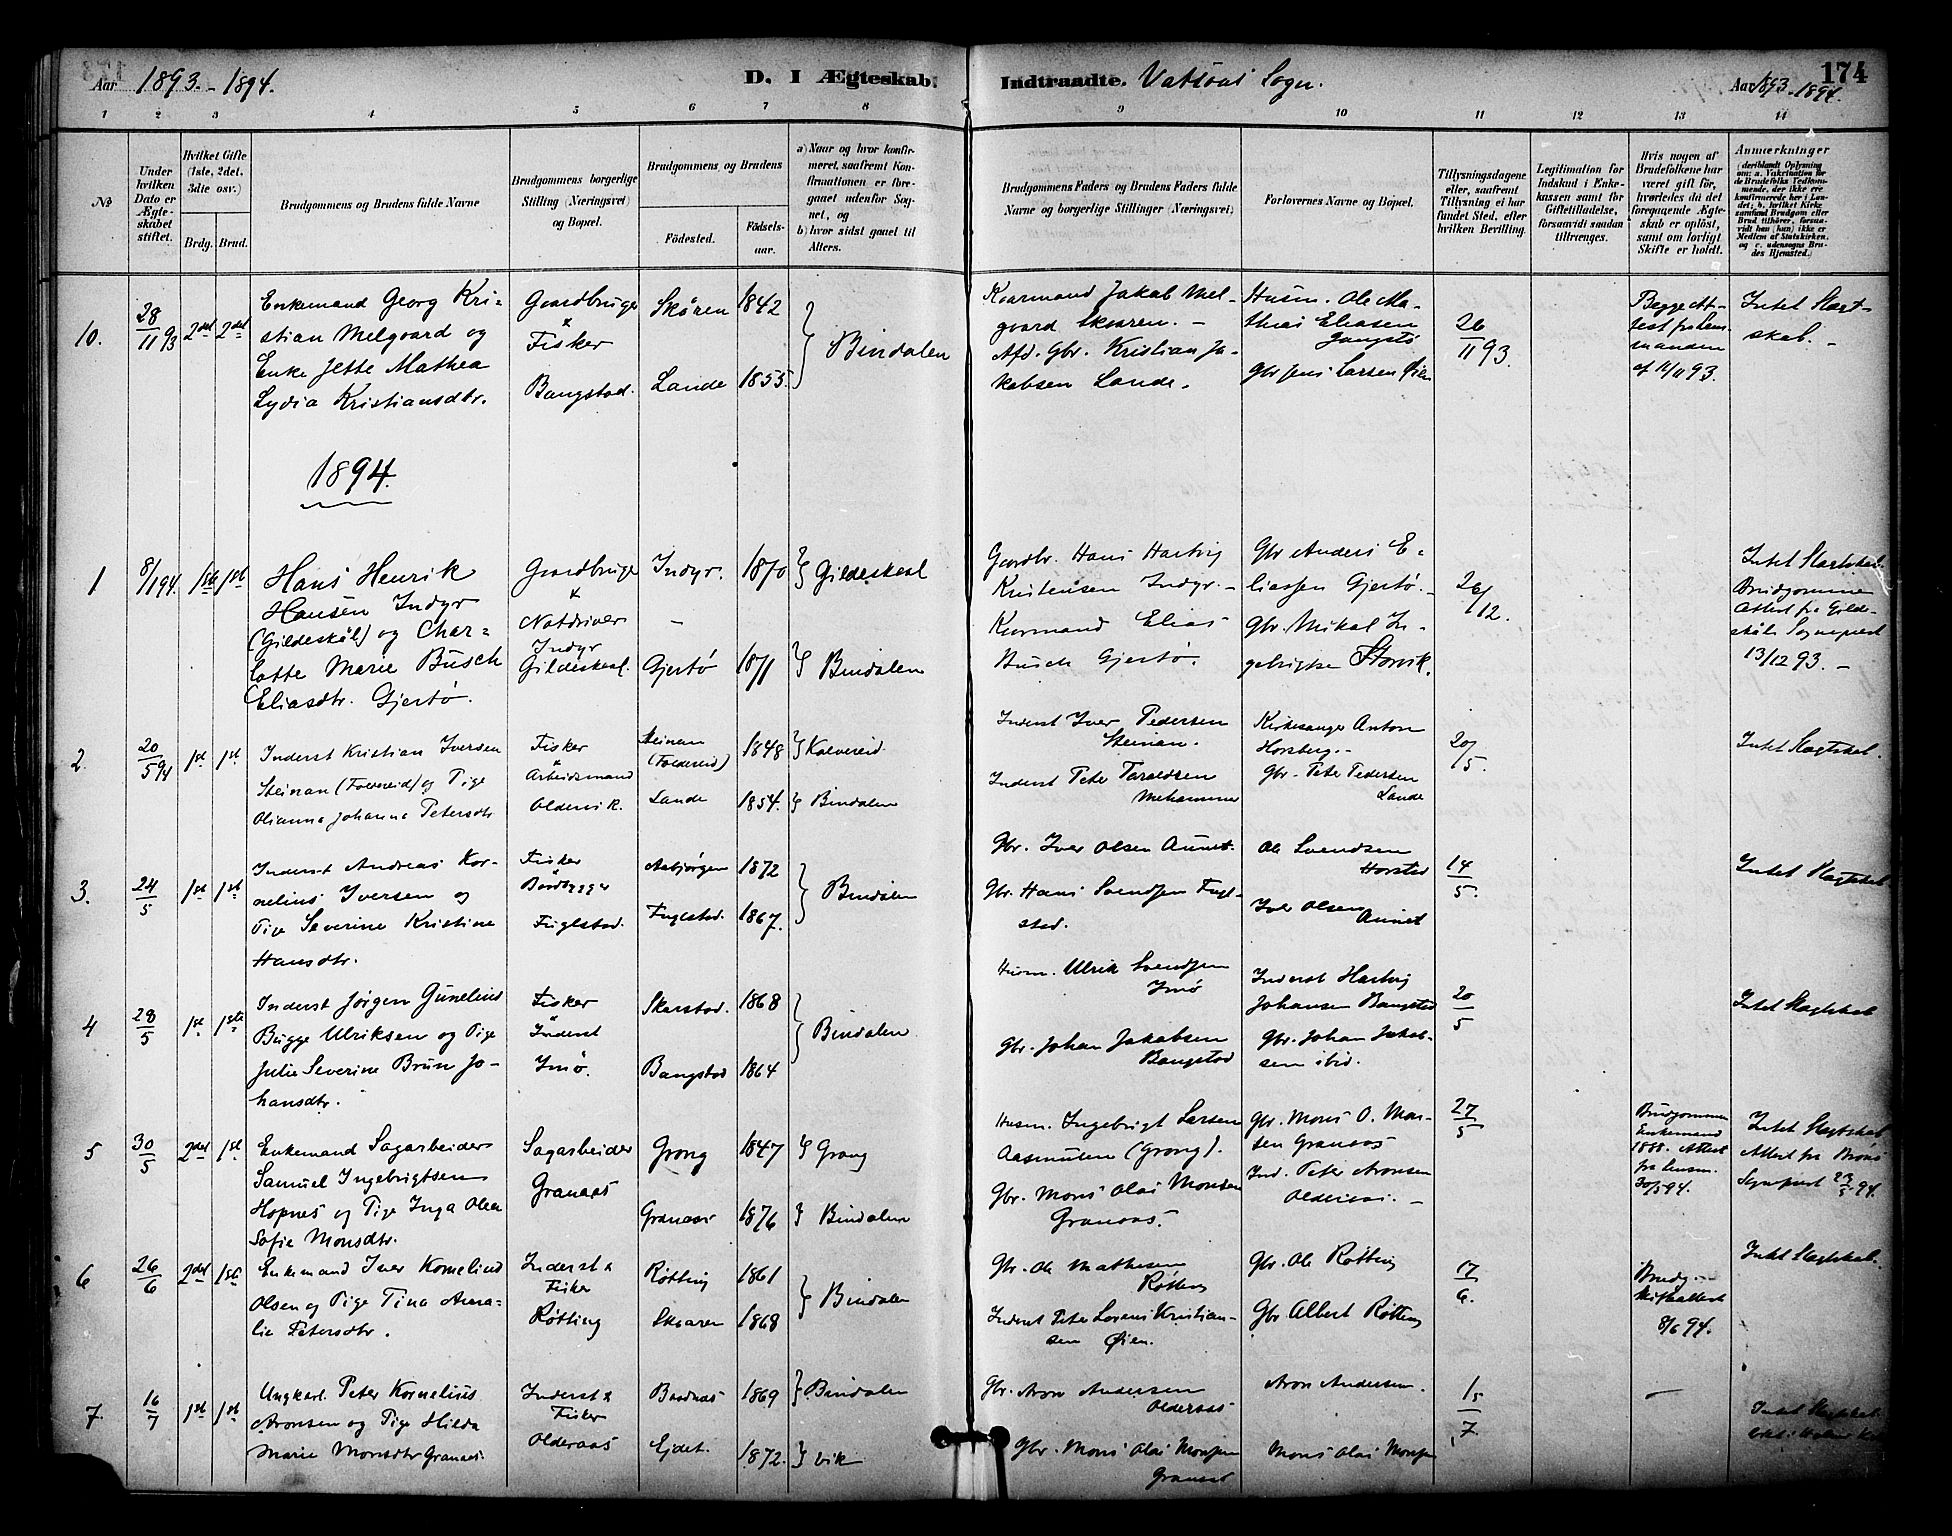 Aar 1893.-1894.
D. I Ægteskab
Indtraadte. Vatsöas Sogn.
Aar 1893-1894.
174
1 2 3 4 5 6 7 8 9 10 11 12 13 14
No
Under
hvilken
Dato er
Ægte-
skabet
stiftet.
Hvilket Gifte
(1ste, 2det,
3die osv.)
Brdg. Brud.
Brudgommens og Brudens fulde Navne
Brudgommens borgerlige
Stilling (Næringsvei)
og Bopæl.
Brudgommens og Brudens
Fødested.
Fødsels-
aar.
a) Naar og hvor konfir-
meret, saafremt Kon-
firmationen er fore-
gaaet udenfor Sog-
net, og
b) hvor sidst gaaet til
Alters.
Brudgommens Faders og Brudens Faders fulde
Navne og borgerlige Stillinger (Næringsvei)
Forlovernes Navne og Bopæl.
Tillysningsdagene
eller, saafremt
Tillysning ei har
fundet Sted, efter
hvilken Bevilling.
Legitimation for
Indskud i Enke-
kassen samt for
Giftetilladelse,
forsaavidt saadan
tiltrænges.
Hvis nogen af
Brudefolkene har
været gift før,
hvorledes da det
foregaaende Ægte-
skab er opløst,
samt om lovligt
Skifte er holdt.
Anmærkninger
(deriblandt Oplysning
om: a. Vakcination for
de Brudefolks Vedkom-
mende, der ikke ere
konfirmerede her i Lan-
det; b. hvilket Kirke
samfund Brudgom eller
Brud tilhører, forsaa-
vidt han (hun) ikke er
Medlem af Statskirken,
og c. udensogns Bru-
des Hjemsted.)
10.
28/11 93
2det 2det
Enkemand Georg Kri-
stian Melgaard og
Enke Jette Mathea
Lydia Kristiansdtr.
Gaardbruger
&
Fisker
Bangstad.
Skåren 1842
Lande 1855.
Bindalen
Kaarmand Jakob Mel-
gaard Skaaren. -
Afd. Gbr. Kristian Ja-
kobsen Lande.
Husm. Ole Ma-
thias Eliasen
Gbr Jens Larsen Øien
26/11 93.
Begge At-
test fra Lens-
manden
af 11/11 93.
Intet Slægt-
skab. -
1894.
1
8/1 94.
1ste 1ste
Hans Henrik
Hansen Indyr
(Gildeskål) og Char-
lotte Marie Busch
Eliasdtr. Gjertö.
Gaardbruger
&
Notdriver
Indyr
Gildeskaal.
Indyr. 1870
-
Gjertö 1871
Gildeskaal
Bindalen
Gaardbr. Hans Hartvig
Kristensen Indyr. -
Kaarmand Elias
Busch Gjertö.
Gbr Anders E-
liassen Gjertö. -
Gbr. Mikal In-
gebrigtsen Storvik.
26/12.
Intet Slægtskab
Brudgommens
Attest fra Gilde-
skåls Sogneprest
13/12 93. -
2.
20/5 94
1st 1st
Inderst Kristian Iversen
Steinan (Foldereid) og Pige
Olianna Johanna Petersdtr
Fisker
&
Arbeidsmand
Oldervik.
Steinan
(Foldereid)
1848
Lande 1854.
Kolvereid
Bindalen
Inderst Iver Pedersen
Steinan.
Inderst Peter Taraldsen
Mehammer
Kirkesanger Anton
Horsberg. -
Gbr. Peter Pedersen
Lande
20/5.
Intet Slægtskab.
3.
24/5
1st 1st
Inderst Andreas Kor-
nelius Iversen og
Pige Severine Kristine
Hansdtr.
Fisker
&
Baadbygger
Fuglstad.
Aabjörgen 1872
Fuglstad. 1867.
Bindalen
Gbr. Iver Olsen Aunet
Gbr. Hans Svendsen Fugl-
stad.
Ole Svendsen
Horstad
Iver Olsen
Aunet
14/5.
Intet Slægtskab
4
28/5
1st 1ste
Inderst Jörgen Gunelius
Bugge Ulriksen og Pige
Julie Severine Brun Jo-
hansdtr.
Fisker
&
Inderst
Imö.
Skarstad. 1868
Bangstad 1864
Bindalen
Husm. Ulrik Svendsen
Imö
Gbr. Johan Jakobsen
Bangstad
Inderst Hartvig
Johansen Bangstad
Gbr. Johan Jakob-
sen ibid.
20/5
Intet Slægtskab
5
30/5
2det 1st
Enkemand Sagarbeider
Samuel Ingebrigtsen
Hopnes og Pige Inga Olea
Sofie Monsdtr.
Sagarbeider
Granaas
Grong 1847
Granaas 1876
Grong
Bindalen
Husm. Ingebrigt Larsen
Aasmulen (Grong).
Gbr. Mons Olai Monsen
Granaas.
Gbr. Mons O. Mon-
sen Granaas
Ind. Peter Aronsen
Olderaas. -
27/5
Brudgommen
Enkemand
1888. Attest
fra Lensm.
30/5 94.
Intet Slægtskab
Attest fra
Sogneprest 94.
6
26/6
2det 1ste
Enkemand Iver Kornelius
Olsen og Pige Tina Ama-
lie Petersdtr.
Inderst &
Fisker
Røtting
Røtting 1861
Skaaren 1868
Bindalen
Gbr. Ole Mathesen
Røtting
Inderst Peter Lorens Kristian-
sen Øien.
Gbr. Ole Røtting
Gbr Albert Røtting
17/6.
Brudg.
Skifteattest
8/6 94.
Intet Slægtskab.
7.
16/7
1st 1st
Ungkarl Peter Kornelius
Aronsen og Pige Hilda
Marie Monsdtr Granaas.
Inderst &
Fisker
Olderaas
Baadnæs 1869
Ejdet. 1872.
Bindalen
Vik
Gbr. Aron Andersen
Olderaas
Gbr. Mons Olai Monsen
Granaas
Aron Andersen.
Mons Olai Monsen
15/7
-
Intet Slægtskab